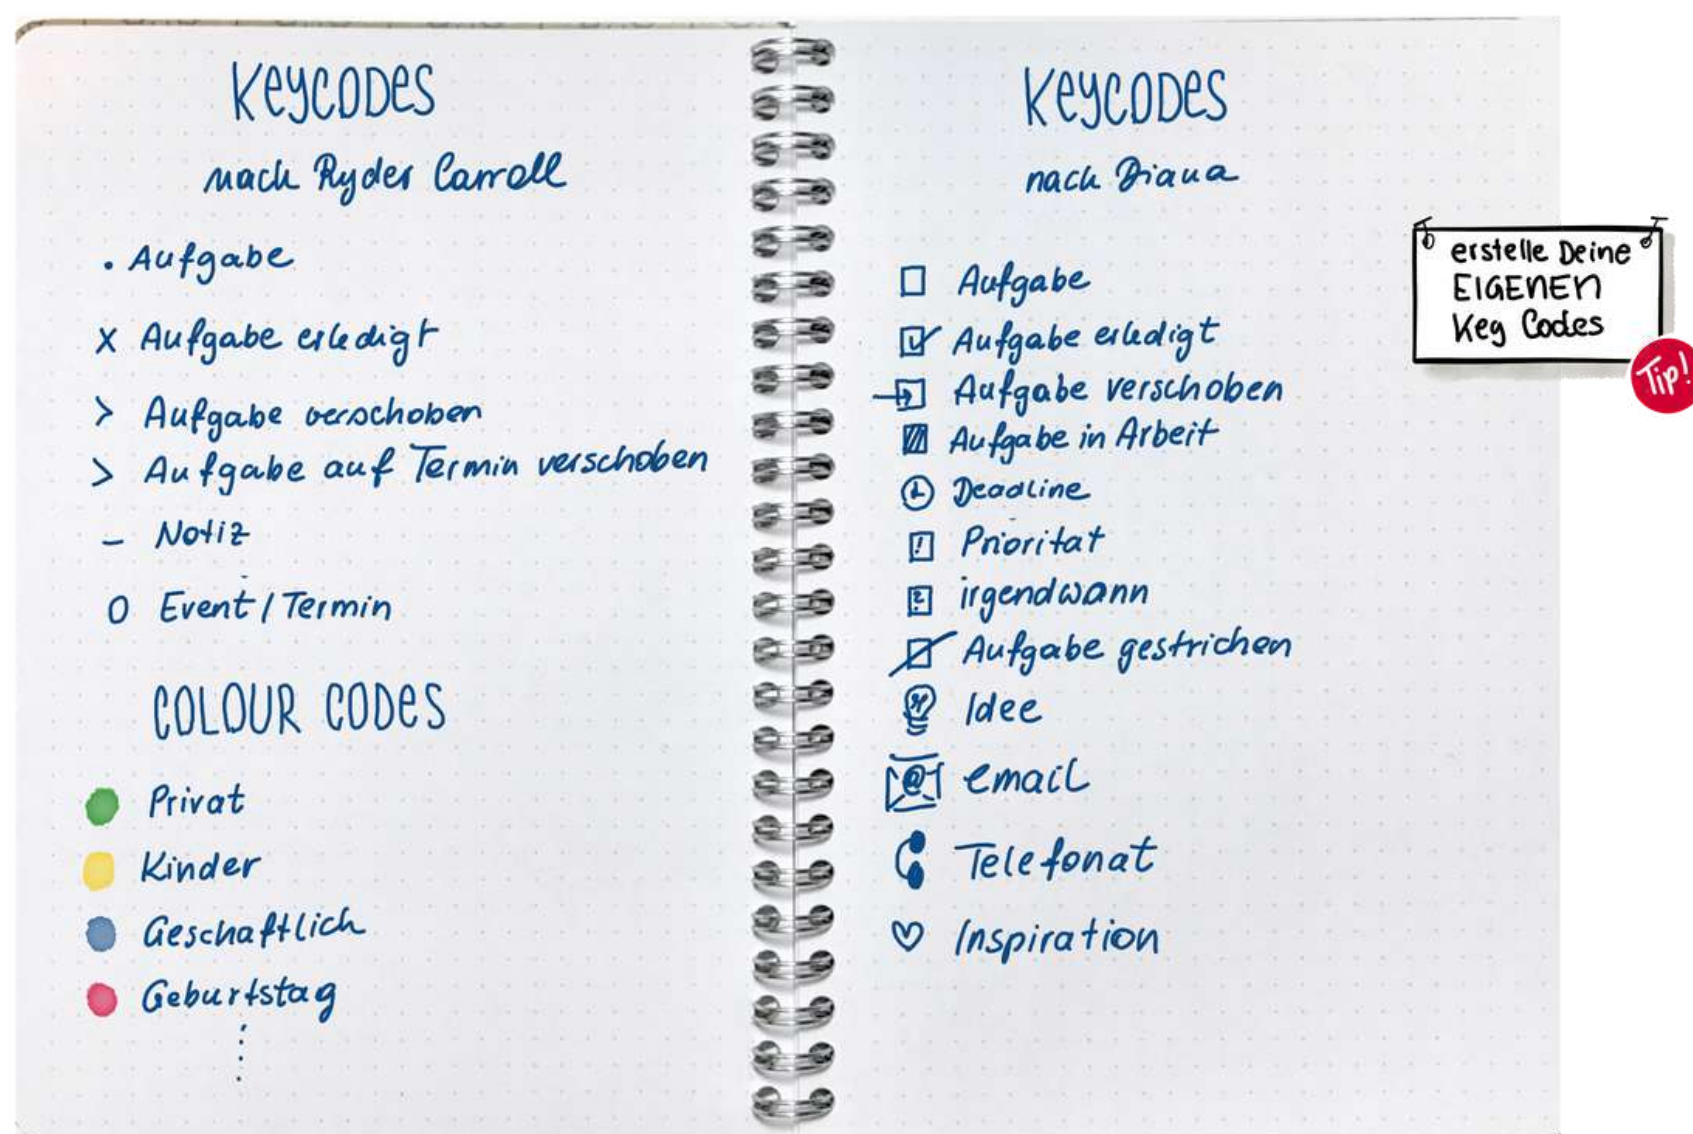 KEYCODES
nach Ryder Carroll
. Aufgabe
x Aufgabe erledigt
> Aufgabe verschoben
> Aufgabe auf Termin verschoben
– Notiz
O Event / Termin
COLOUR CODES
Privat
Kinder
Geschaftlich
Geburtstag
KEYCODES
nach Diana
Aufgabe
Aufgabe erledigt
Aufgabe verschoben
Aufgabe in Arbeit
Deadline
! Prioritat
? irgendwann
Aufgabe gestrichen
Idee
@ email
Telefonat
Inspiration
erstelle Deine
EIGENEN
Key Codes
Tip!